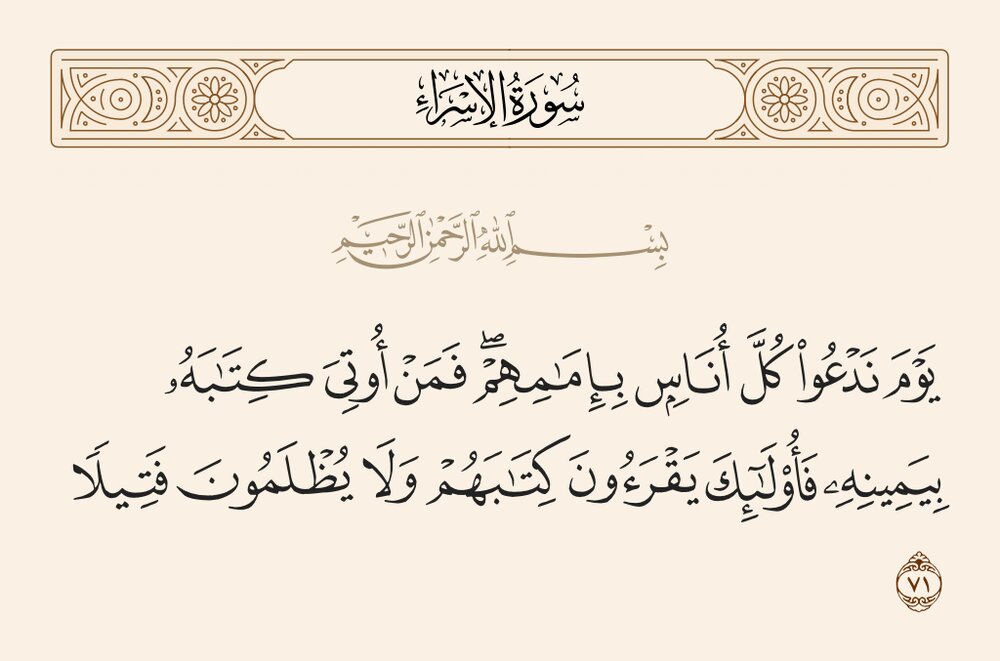 سُورَةُ الإِسْرَاءِ
بِسْمِ ٱللَّهِ ٱلرَّحْمَٰنِ ٱلرَّحِيمِ
يَوْمَ نَدْعُوا۟ كُلَّ أُنَاسٍۭ بِإِمَٰمِهِمْ ۖ فَمَنْ أُوتِىَ كِتَٰبَهُۥ
بِيَمِينِهِۦ فَأُو۟لَٰٓئِكَ يَقْرَءُونَ كِتَٰبَهُمْ وَلَا يُظْلَمُونَ فَتِيلًا
٧١